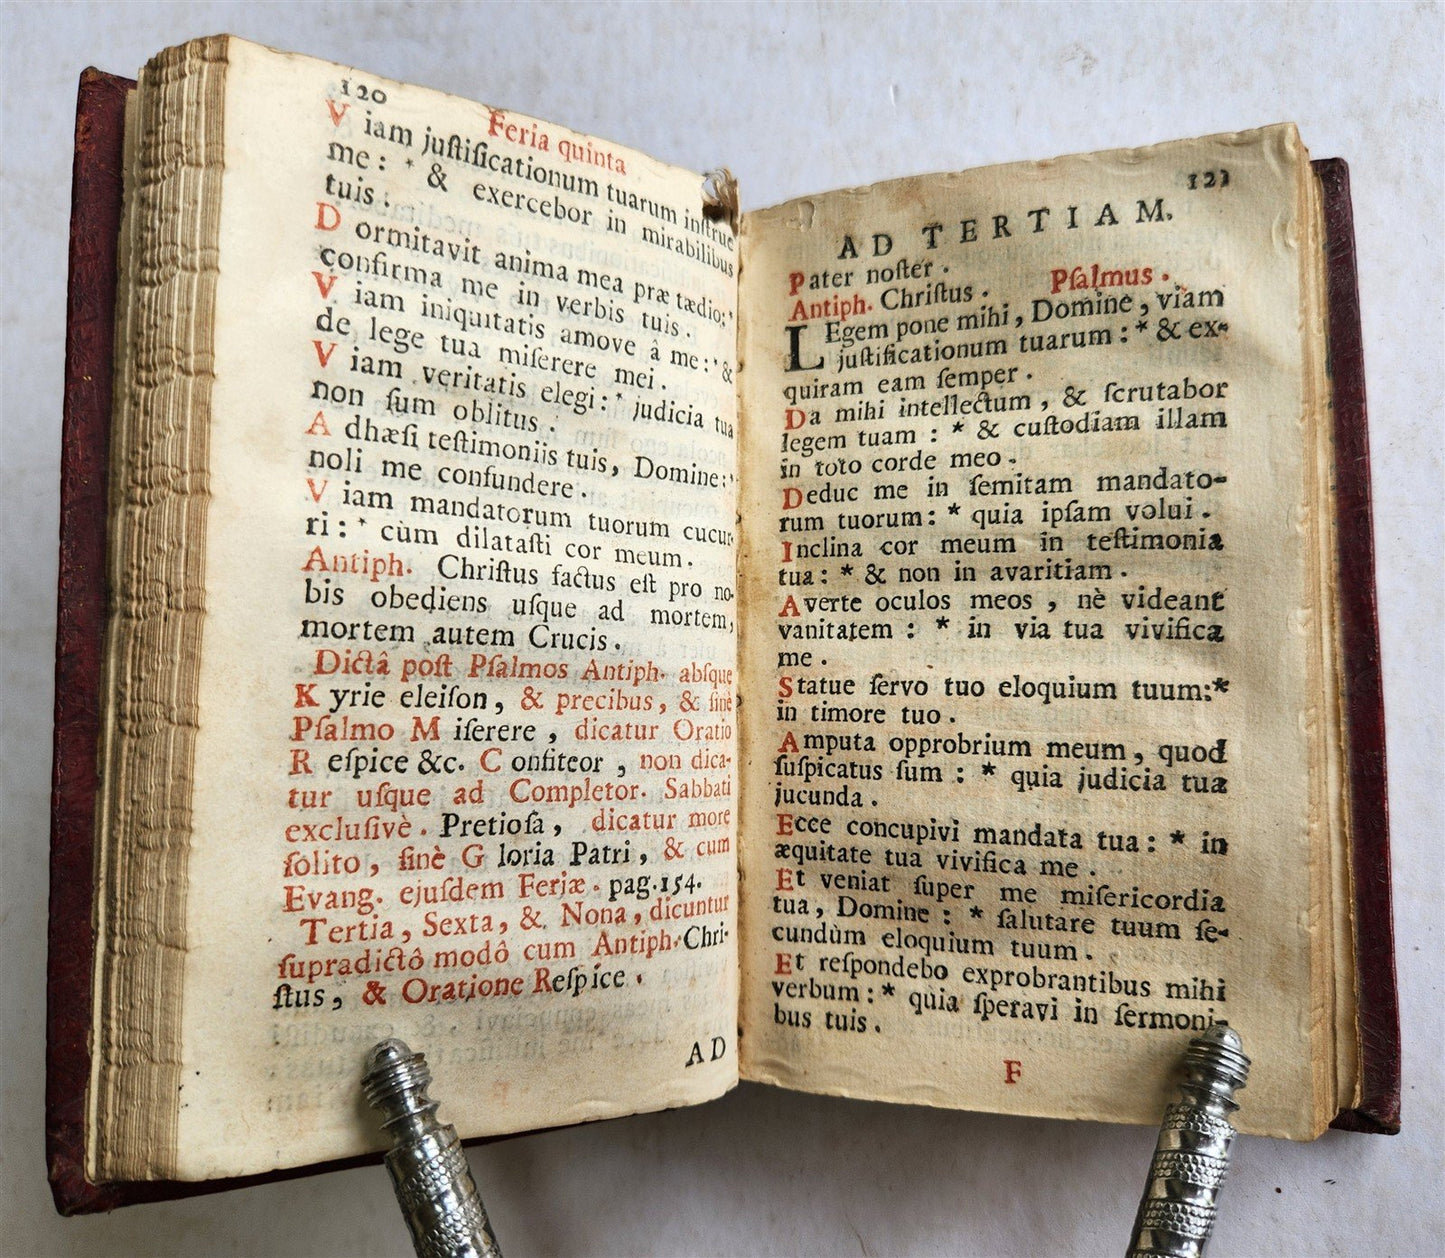 120
Feria quinta
Viam juſtificationum tuarum inſtrue
me: * & exercebor in mirabilibus
tuis.
Dormitavit anima mea præ tædio: *
confirma me in verbis tuis.
Viam iniquitatis amove â me: * &
de lege tua miſerere mei.
Viam veritatis elegi: * judicia tua
non ſum oblitus.
Adhæſi teſtimoniis tuis, Domine: *
noli me confundere.
Viam mandatorum tuorum cucur-
ri: * cùm dilataſti cor meum.
Antiph. Chriſtus factus eſt pro no-
bis obediens uſque ad mortem,
mortem autem Crucis.
Dictâ poſt Pſalmos Antiph. abſque
Kyrie eleiſon, & precibus, & ſinè
Pſalmo Miſerere, dicatur Oratio
Reſpice &c. Confiteor, non dica-
tur uſque ad Completor. Sabbati
excluſivè. Pretioſa, dicatur more
ſolito, ſinè Gloria Patri, & cum
Evang. ejuſdem Feriæ. pag. 154.
Tertia, Sexta, & Nona, dicuntur
ſupradictô modô cum Antiph. Chri-
ſtus, & Oratione Reſpice.
AD
121
AD TERTIAM.
Pater noſter.
Antiph. Chriſtus. Pſalmus.
LEgem pone mihi, Domine, viam
juſtificationum tuarum: * & ex-
quiram eam ſemper.
Da mihi intellectum, & ſcrutabor
legem tuam: * & cuſtodiam illam
in toto corde meo.
Deduc me in ſemitam mandato-
rum tuorum: * quia ipſam volui.
Inclina cor meum in teſtimonia
tua: * & non in avaritiam.
Averte oculos meos, nè videant
vanitatem: * in via tua vivifica
me.
Statue ſervo tuo eloquium tuum: *
in timore tuo.
Amputa opprobrium meum, quod
ſuſpicatus ſum: * quia judicia tua
jucunda.
Ecce concupivi mandata tua: * in
æquitate tua vivifica me.
Et veniat ſuper me miſericordia
tua, Domine: * ſalutare tuum ſe-
cundùm eloquium tuum.
Et reſpondebo exprobrantibus mihi
verbum: * quia ſperavi in ſermoni-
bus tuis.
F